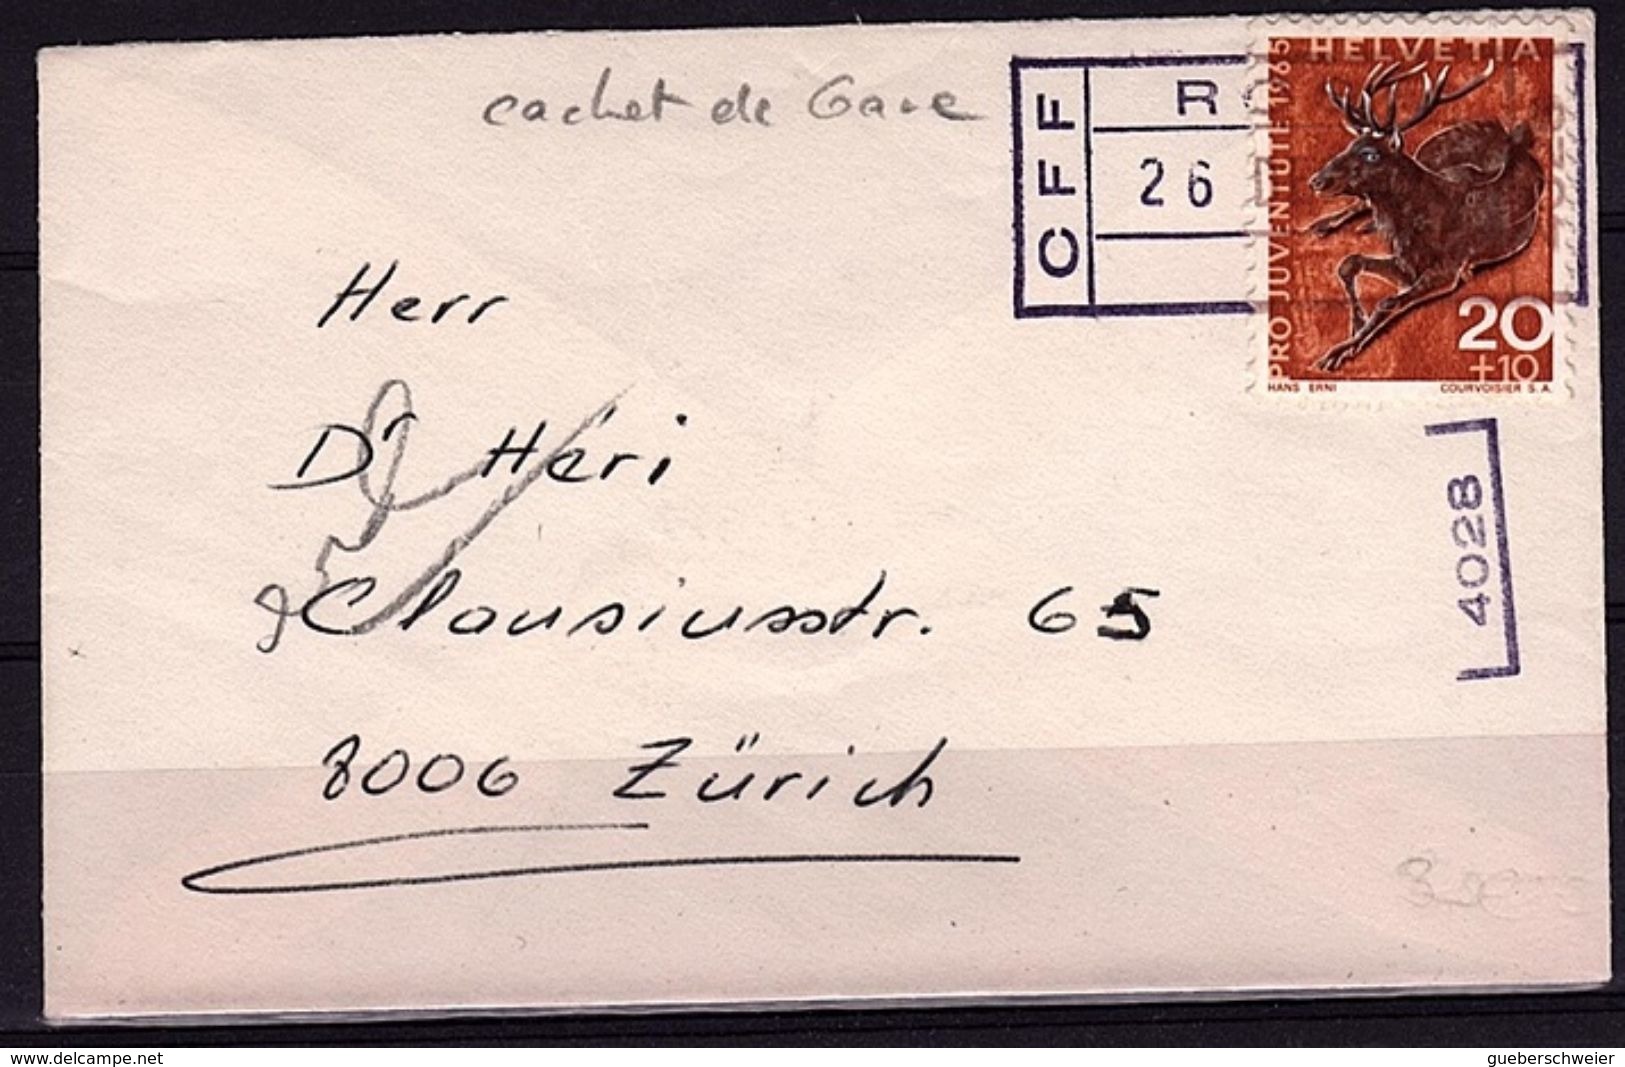 cachet de Gare
CFF
R
26
HELVETIA
PRO JUVENTUTE 1965
20
+10
HANS ERNI
COURVOISIER S.A.
4028
Herr
Dr Héri
Clausiusstr. 65
8006 Zürich
www.delcampe.net
gueberschweier